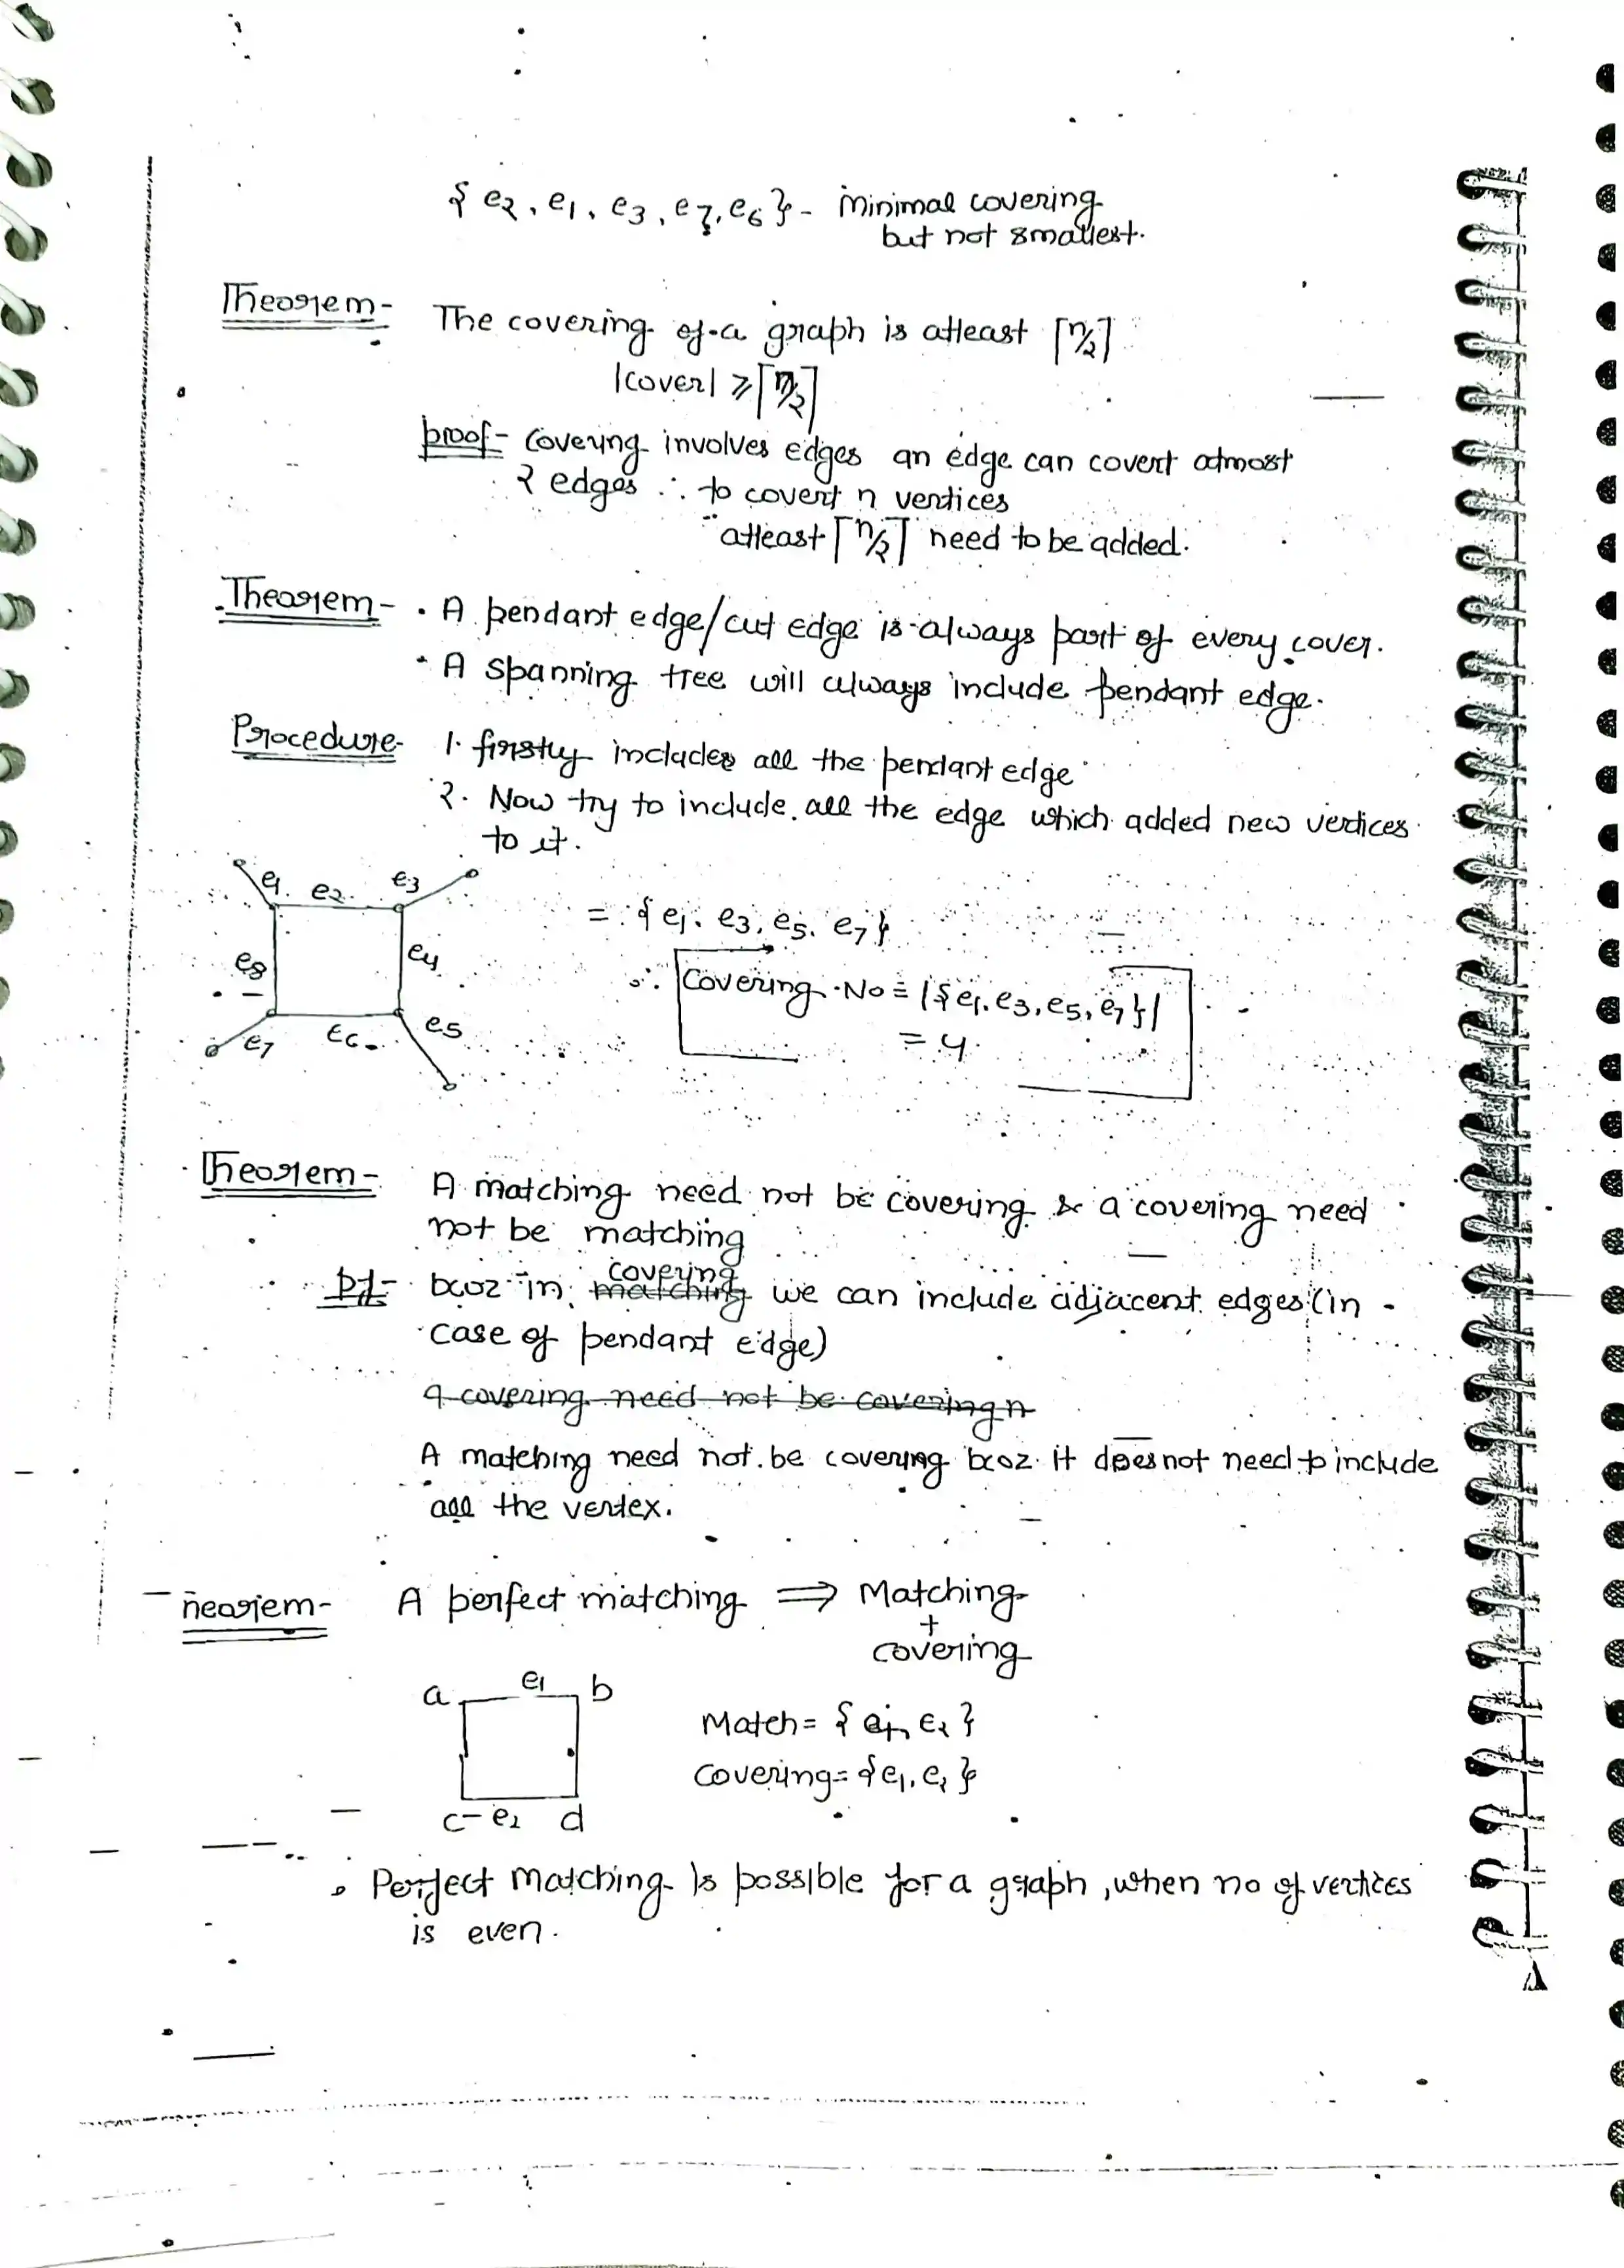 { e2, e1, e3, e7, e6 } - minimal covering
but not smallest.
Theorem- The covering of a graph is atleast ⌈n/2⌉
|cover| ⩾ ⌈n/2⌉
proof- covering involves edges an edge can covert atmost
2 edges ∴ to covert n vertices
atleast ⌈n/2⌉ need to be added.
Theorem- • A pendant edge/cut edge is always part of every cover.
• A spanning tree will always include pendant edge.
Procedure- 1. firstly includes all the pendant edge
2. Now try to include all the edge which added new vertices
to it.
e1 e2 e3
= {e1, e3, e5, e7}
e8 e4
∴ Covering No = |{e1, e3, e5, e7}|
= 4
e7 e6 e5
Theorem- A matching need not be covering & a covering need
not be matching
covering
pf- bcoz in matching we can include adjacent edges (in
case of pendant edge)
a covering need not be covering n
A matching need not be covering bcoz it does not need to include
all the vertex.
neorem- A perfect matching ⇒ Matching
+
covering
a e1 b
Match = { e1, e2 }
covering = {e1, e2}
c- e2 d
• Perfect matching is possible for a graph, when no of vertices
is even.